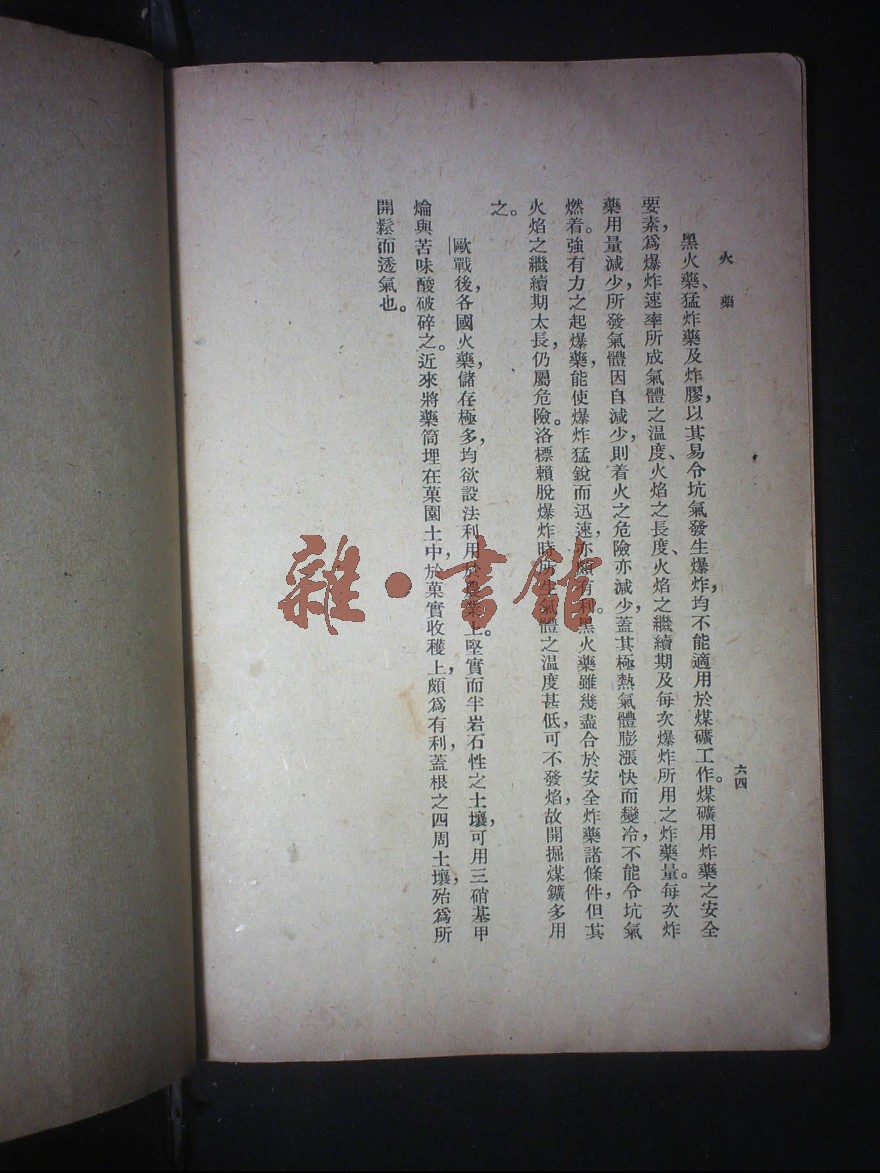 火藥
六四
黑火藥、猛炸藥及炸膠，以其易令坑氣發生爆炸，均不能適用於煤礦工作。煤礦用炸藥之安全
要素，爲爆炸速率所成氣體之温度、火焰之長度、火焰之繼續期及每次爆炸所用之炸藥量。每次炸
藥用量減少，所發氣體因自減少，則着火之危險亦減少，蓋其極熱氣體膨漲快而變冷，不能令坑氣
燃着。強有力之起爆藥，能使爆炸猛銳而迅速，亦頗有利。黑火藥雖幾盡合於安全炸藥諸條件，但其
火焰之繼續期太長，仍屬危險。洛標賴脫爆炸時所生氣體之温度甚低，可不發焰，故開掘煤鑛多用
之。
歐戰後，各國火藥，儲存極多，均欲設法利用於農業上。堅實而半岩石性之土壤，可用三硝基甲
爚與苦味酸破碎之。近來將藥筒埋在菓園土中，於菓實收穫上，頗爲有利，蓋根之四周土壤，殆爲所
開鬆而透氣也。
雜·書館